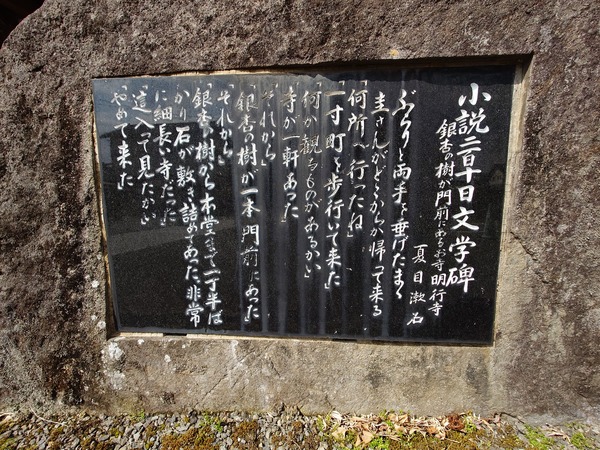 小説二百十日文学碑
銀杏の樹が門前にあるお寺明行寺
夏目漱石
ぶらりと両手を垂げたまゝ
圭さんがどこからか帰って来る
「何所へ行ったね」
「一寸町を歩行いて来た」
「何か観るものがあるかい」
「寺が一軒あった」
「それから」
「銀杏の樹が一本門前にあった」
「それから」
「銀杏の樹から本堂まで一丁半ば
かり石が敷き詰めてあった非常
に細長い寺だった」
「這入って見たかい」
「やめて来た」